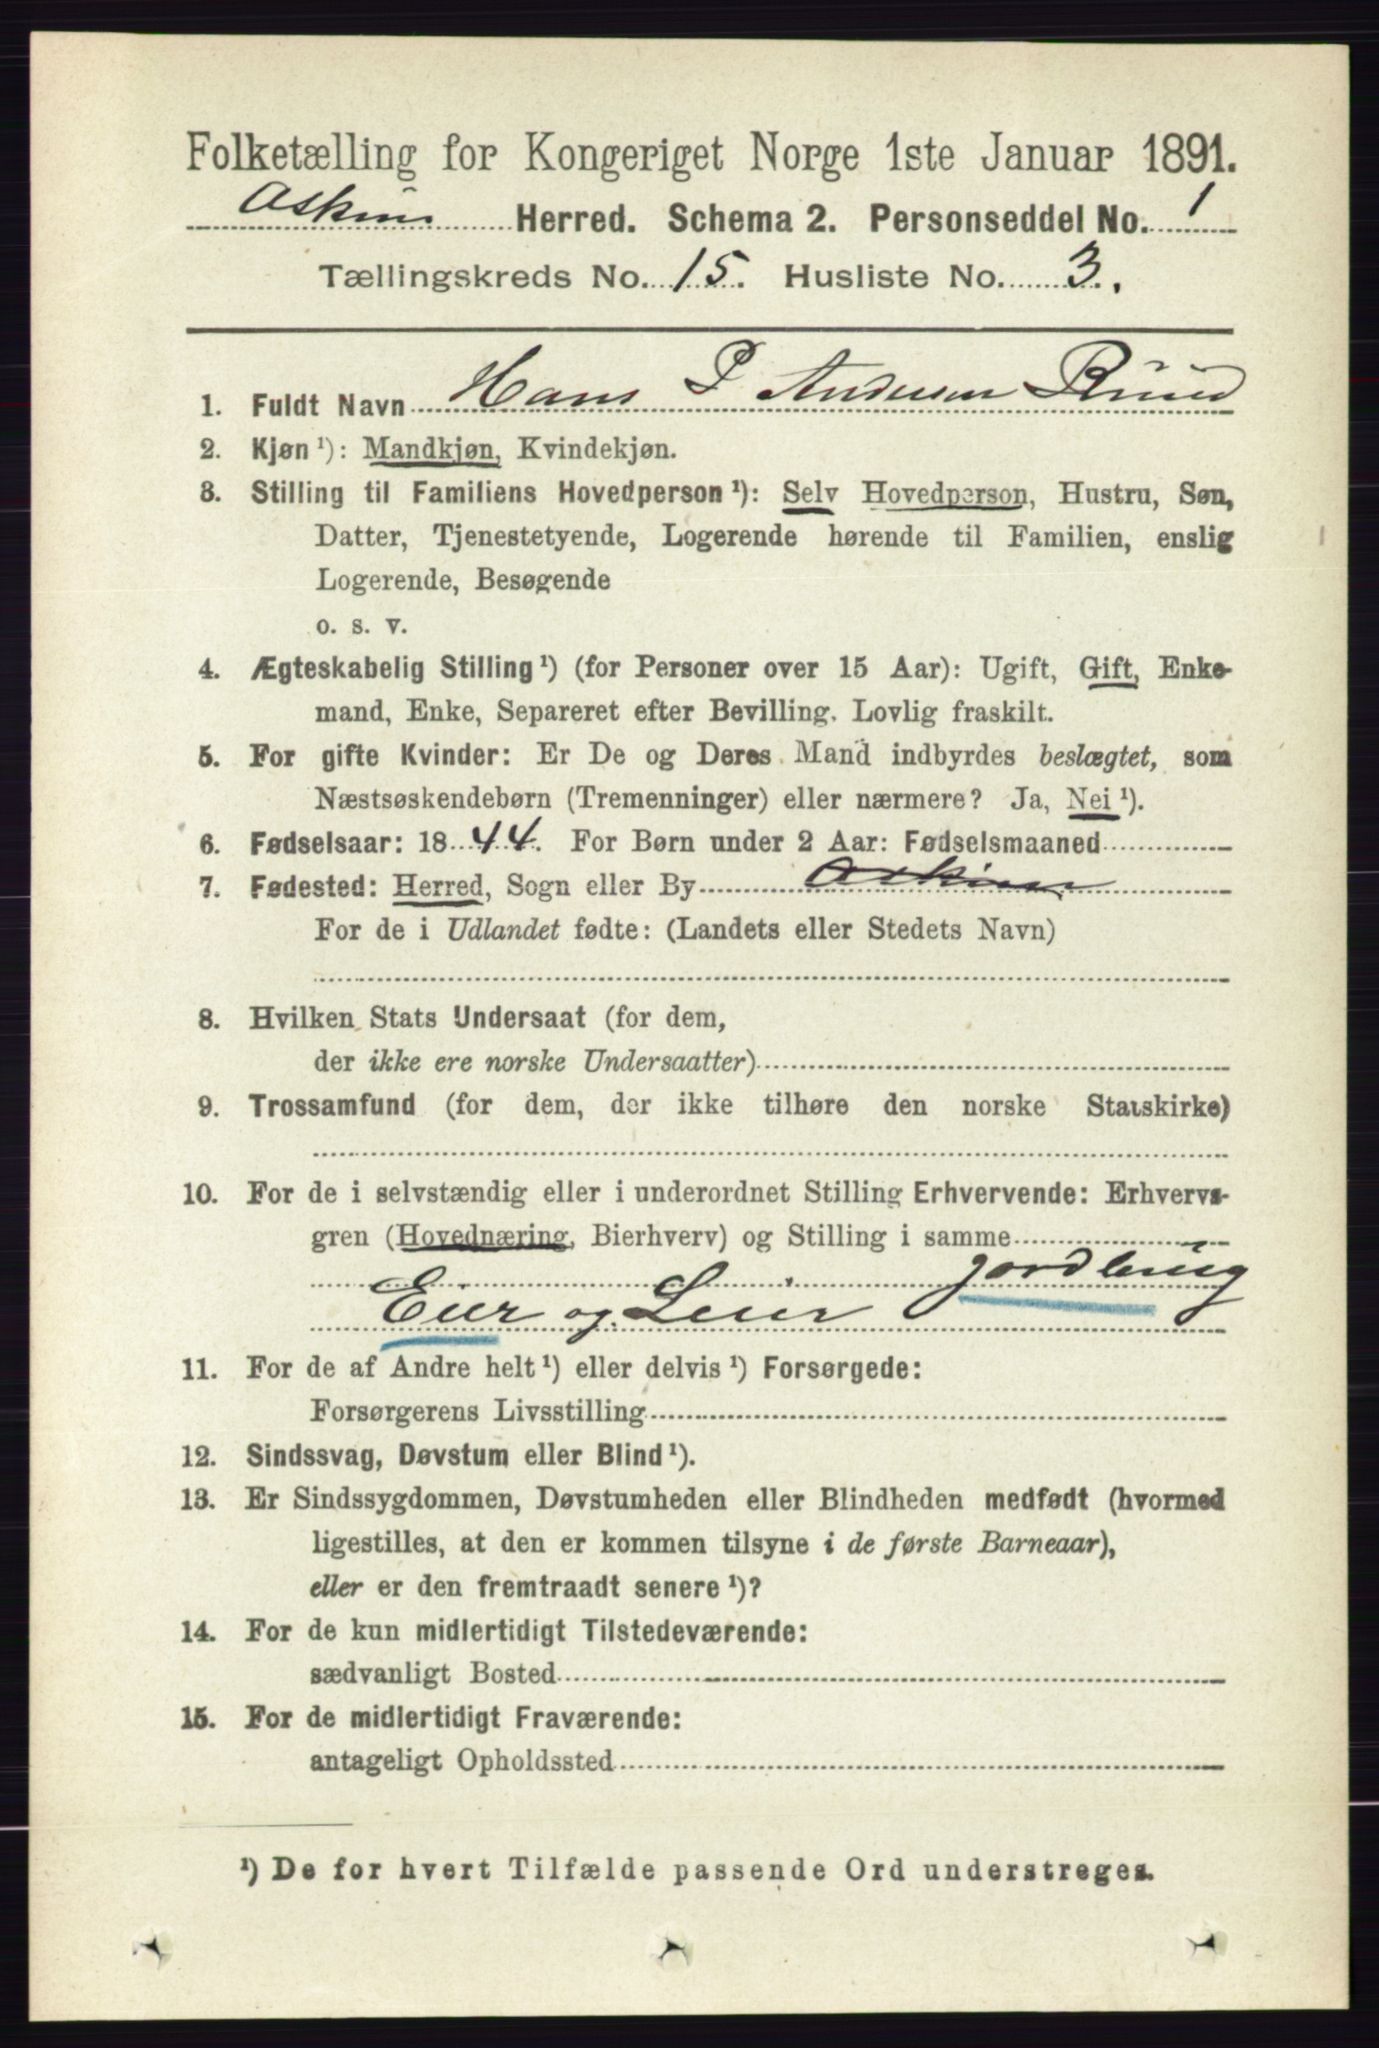 Folketælling for Kongeriget Norge 1ste Januar 1891.
Askim Herred. Schema 2. Personseddel No. 1
Tællingskreds No. 15. Husliste No. 3.
1. Fuldt Navn Hans P Andersen Ruud
2. Kjøn ¹): Mandkjøn, Kvindekjøn.
3. Stilling til Familiens Hovedperson ¹): Selv Hovedperson, Hustru, Søn,
Datter, Tjenestetyende, Logerende hørende til Familien, enslig
Logerende, Besøgende
o. s. v.
4. Ægteskabelig Stilling ¹) (for Personer over 15 Aar): Ugift, Gift, Enke-
mand, Enke, Separeret efter Bevilling. Lovlig fraskilt.
5. For gifte Kvinder: Er De og Deres Mand indbyrdes beslægtet, som
Næstsøskendebørn (Tremenninger) eller nærmere? Ja, Nei ¹).
6. Fødselsaar: 1844. For Børn under 2 Aar: Fødselsmaaned
7. Fødested: Herred, Sogn eller By Askim
For de i Udlandet fødte: (Landets eller Stedets Navn)
8. Hvilken Stats Undersaat (for dem,
der ikke ere norske Undersaatter)
9. Trossamfund (for dem, der ikke tilhøre den norske Statskirke)
10. For de i selvstændig eller i underordnet Stilling Erhvervende: Erhvervs-
gren (Hovednæring, Bierhverv) og Stilling i samme
jordbrug
Eier og
11. For de af Andre helt ¹) eller delvis ¹) Forsørgede:
Forsørgerens Livsstilling
12. Sindssvag, Døvstum eller Blind ¹).
13. Er Sindssygdommen, Døvstumheden eller Blindheden medfødt (hvormed
ligestilles, at den er kommen tilsyne i de første Barneaar),
eller er den fremtraadt senere ¹)?
14. For de kun midlertidigt Tilstedeværende:
sædvanligt Bosted
15. For de midlertidigt Fraværende:
antageligt Opholdssted
¹) De for hvert Tilfælde passende Ord understreges.